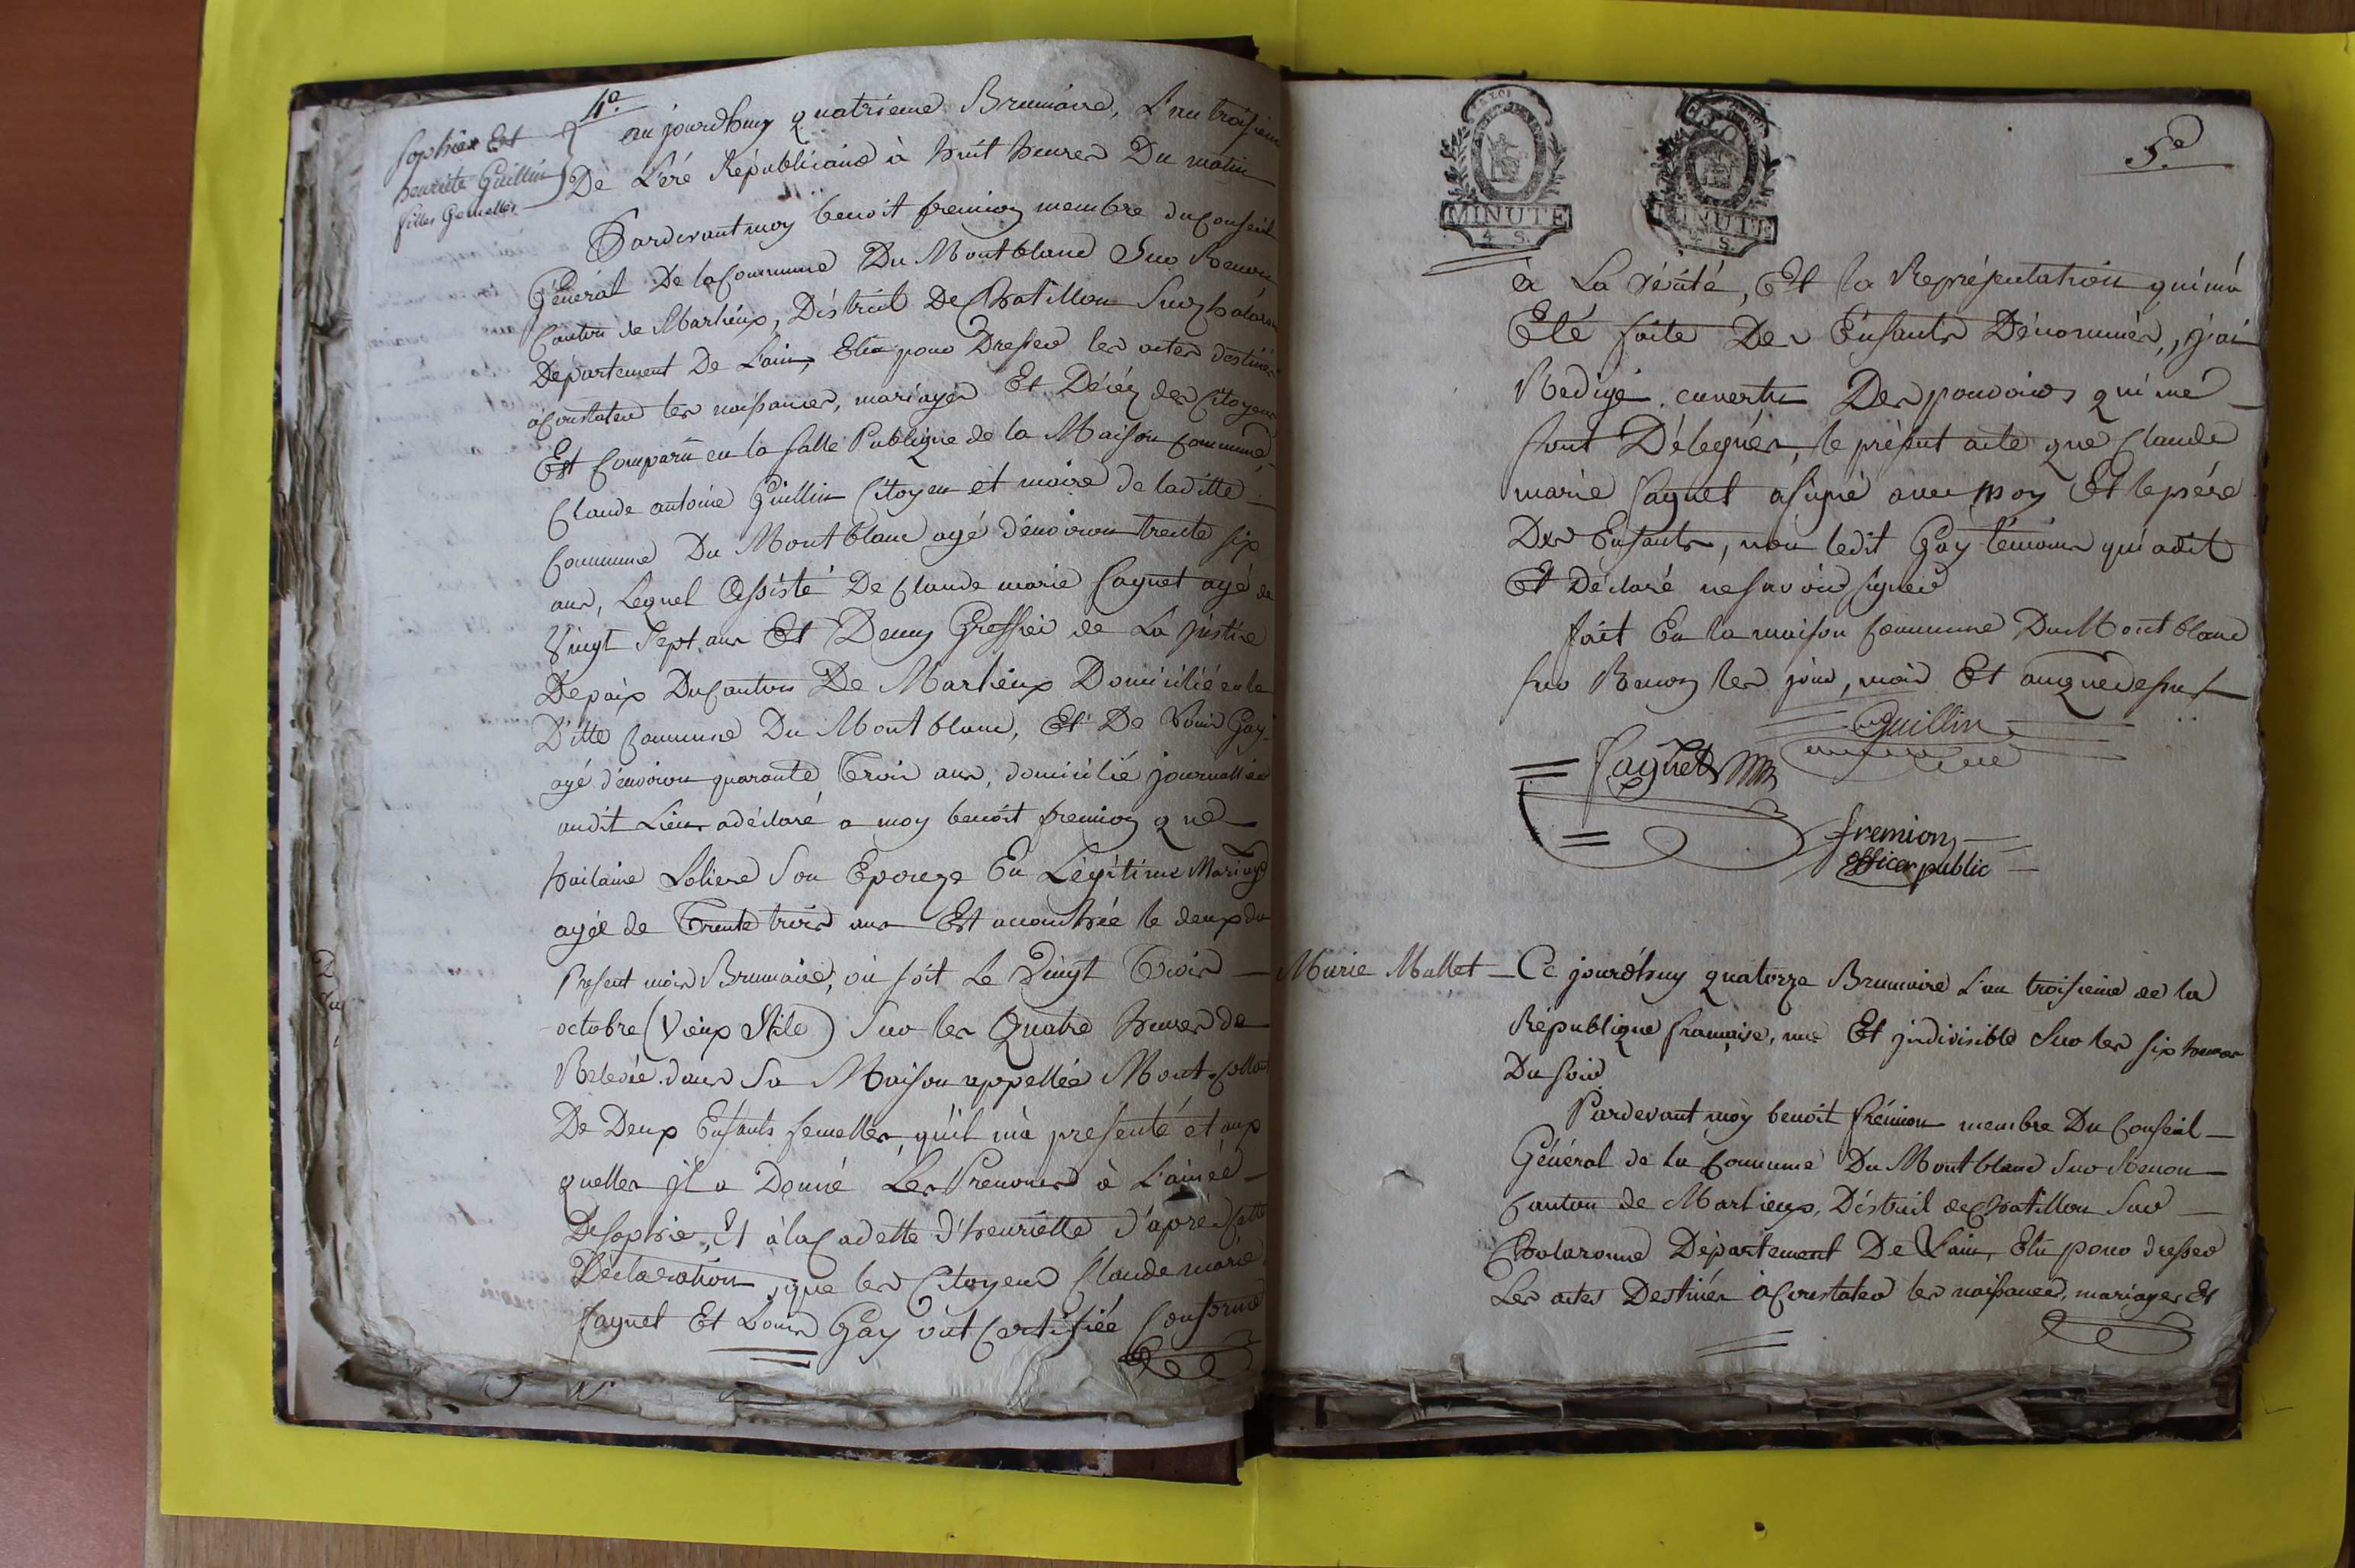 4e.
Sophie Et
henriette Guillin
filles Gemelles
aujourdhuy quatrieme Brumaire, L'an troisieme
De L'éré Républicaine à huit heures Du matin
Pardevant moy benoit fremion membre du Conseil
Général De la Commune Du Montblanc Sur Renon
Canton de Marlieux, District De Chatillon Sur Chalaronne
Département De L'ain, Elu pour Dresser les actes destinés
à Constater les naissances, mariages Et Décéz des Citoyens
Est Comparu en la salle Publique de la Maison Commune,
Claude antoine Guillin Citoyen et maire de laditte
Commune Du Montblanc agé d'environ trente six
ans, Lequel Assisté De Claude marie Cagnet agé de
Vingt Sept ans Et Demy Greffier de La justice
De paix Du Canton De Marlieux Domicilié en la
Ditte Commune Du Montblanc, Et De Louis Gay
agé d'environ quarante Trois ans, domicilié journallier
audit Lieu adéclaré a moy benoit fremion que
Soliere Son Epouse En Légitime Mariage
agée de Trente trois ans Est accouchée le deux du
Present mois Brumaire, ou soit Le Vingt Trois
octobre (Vieux Stile) Sur les Quatre heures de
Relevée dans Sa Maison appellée
De Deux Enfants femelles qu'il m'a presenté et aux
quelles il a Donné Les Prenoms à L'ainée
De Sophie, Et à la Cadette d'henriette d'aprés Cette
Déclaration, que les Citoyens Claude marie
Cagnet Et Louis Gay ont Certifiée Conforme
MINUTE
4 S.
MINUTE
4 S.
5e
à La Vérité, Et la Représentation qui m'a
Eté faite Des Enfants Dénommés, j'ai
Redigé envertu Des pouvoirs qui me
sont Délégués, le présent acte que Claude
marie Cagnet asigné avec moy Et le père
Des Enfants, non ledit Gay témoins qui adit
Et Déclaré ne savoir signer
fait En la maison Commune Du Montblanc
sur Renon les jour, mois Et an que dessus
Guillin
Cagnet
fremion
officier public
Marie Mallet
Ce jourd'huy quatorze Brumaire L'an troisieme de la
République française, une Et indivisible Sur les six heures
Du soir
Pardevant moy benoit frémion membre Du Conseil
Général de la Commune Du Montblanc Sur Renon
Canton de Marlieux, District de Chatillon Sur
Chalaronne Département De L'ain, Elu pour dresser
Les actes Destinés à Constater les naissances, mariages Et